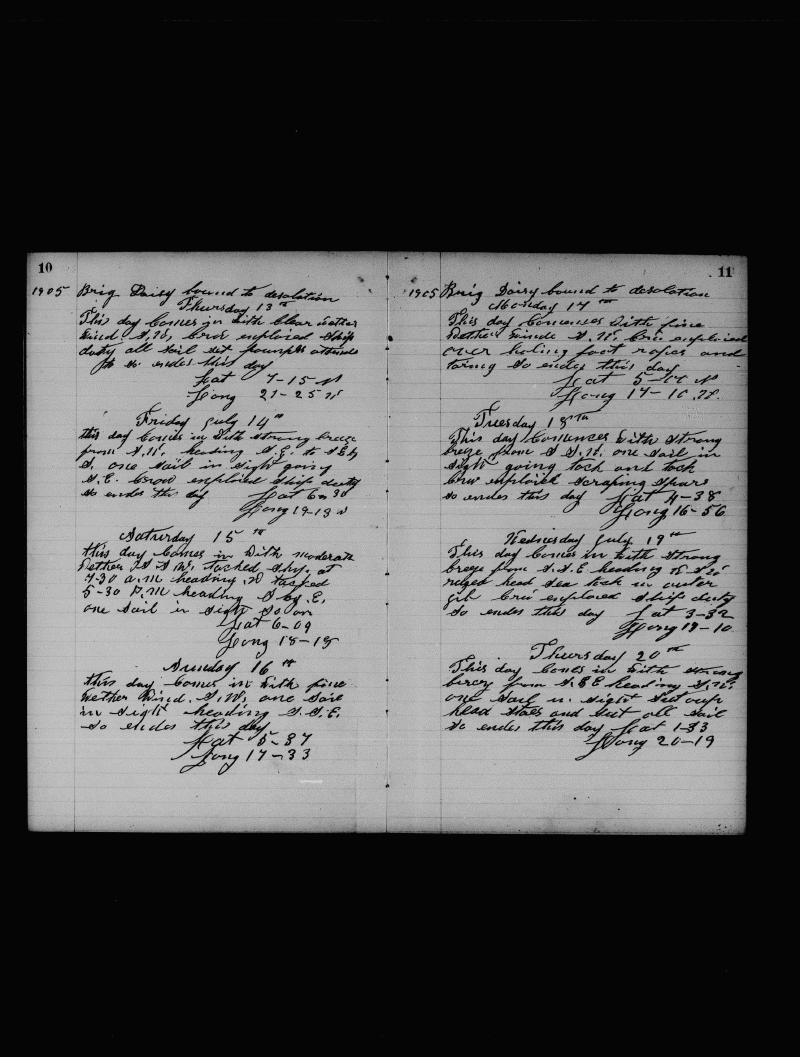 10
1905 Brig Daisy bound to desolation
Thursday 13th
This day Comes in with Clear wether
wind S.W. Crew employed Ship
duty all sail set
so endes this day
Lat 7-15 N
Long 21-25 W
Friday July 14th
this day Comes in with strong breze
from S.W. heading S.E. to S E by
S. one sail in sight going
S.E. Crew employed Ship duty
so ends this day Lat 6-30
Long 19-13 W
Saturday 15th
this day Comes in with moderate
wether S S W. tacked Ship at
7-30 A.M heading W tacked
5-30 P.M heading S by E.
one sail in sight So on
Lat 6-09
Long 18-18
Sunday 16th
this day Comes in with fine
wether Wind. S.W. one sail
in sight heading S.S.E.
so endes this day
Lat 5-37
Long 17-33
11
1905 Brig Daisy bound to desolation
Monday 17th
This day Comences with fine
wether winds S.W. Crew employed
over haling foot ropes and
taring so endes this day
Lat 5-
Long 17-10 W.
Tuesday 18th
This day Comences with strong
breze from S S.W. one sail in
sight going tack and tack
Crew employed scraping spars
so endes this day Lat 4-38
Long 16-56
Wednesday July 19th
This day Comes in with strong
breze from S.S.E heading
ruged head sea took in outer
gib Crew employed Ship duty
so endes this day Lat 3-32
Long 18-10
Thursday 20th
This day Comes in with strong
brezy from S.S.E heading S.W.
one sail in sight Set oup
head staes and Set all sail
so endes this day Lat 1-33
Long 20-19